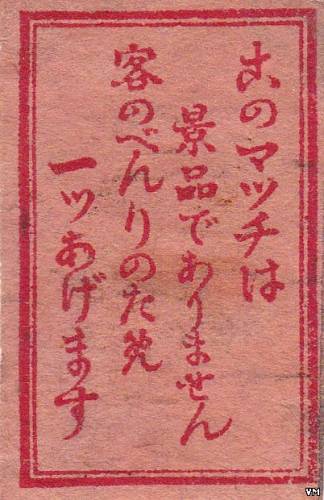 このマッチは
景品でありません
客のべんりのため
一ツあげます
VM